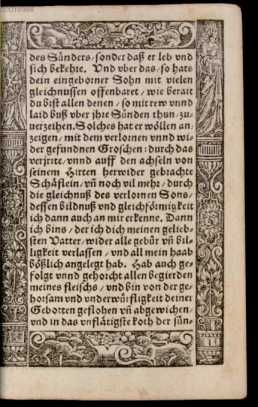 des Sünders / sonder daß er leb vnd
sich bekehre. Vnd vber das / so hats
dein eingeborner Sohn mit vielen
gleichnussen offenbaret / wie berait
du bist allen denen / so mit rew vnnd
laid buß vber jhre Sünden thun / zu-
uerzeihen. Solches hat er wöllen an-
zeigen / mit dem verlornen vnnd wi-
der gefundnen Groschen: durch das
verjrrte / vnnd auff den achseln von
seinem Hirten herwider gebrachte
Schäflein / vñ noch vil mehr / durch
die gleichnuß des verlornen Sons /
dessen bildnuß vnd gleichförmigkeit
ich dann auch an mir erkenne. Dann
ich bins / der ich dich meinen gelieb-
sten Vatter / wider alle gebür vñ bil-
ligkeit verlassen / vnd all mein haab
bößlich angelegt hab. Hab auch ge-
folgt vnnd gehorcht allen begierden
meines fleischs / vnd bin von der ge-
horsam vnd vnderwürffligkeit deiner
Gebotten geflohen vñ abgewichen /
vnd in das vnflätigste koth der sün-